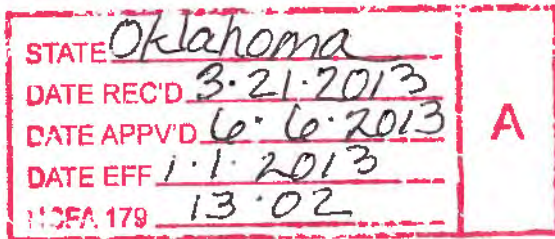 STATE Oklahoma
DATE REC'D 3.21.2013
DATE APPV'D 6.6.2013
DATE EFF 1.1.2013
HCFA 179 13.02
A